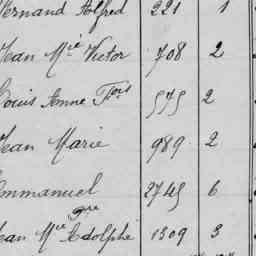 Fernand Alfred 221 1
Jean Mie Victor 708 2
Louis Anne Fois 575 2
Jean Marie 989 2
Emmanuel 3745 6
Jean Mie Adolphe 1309 3